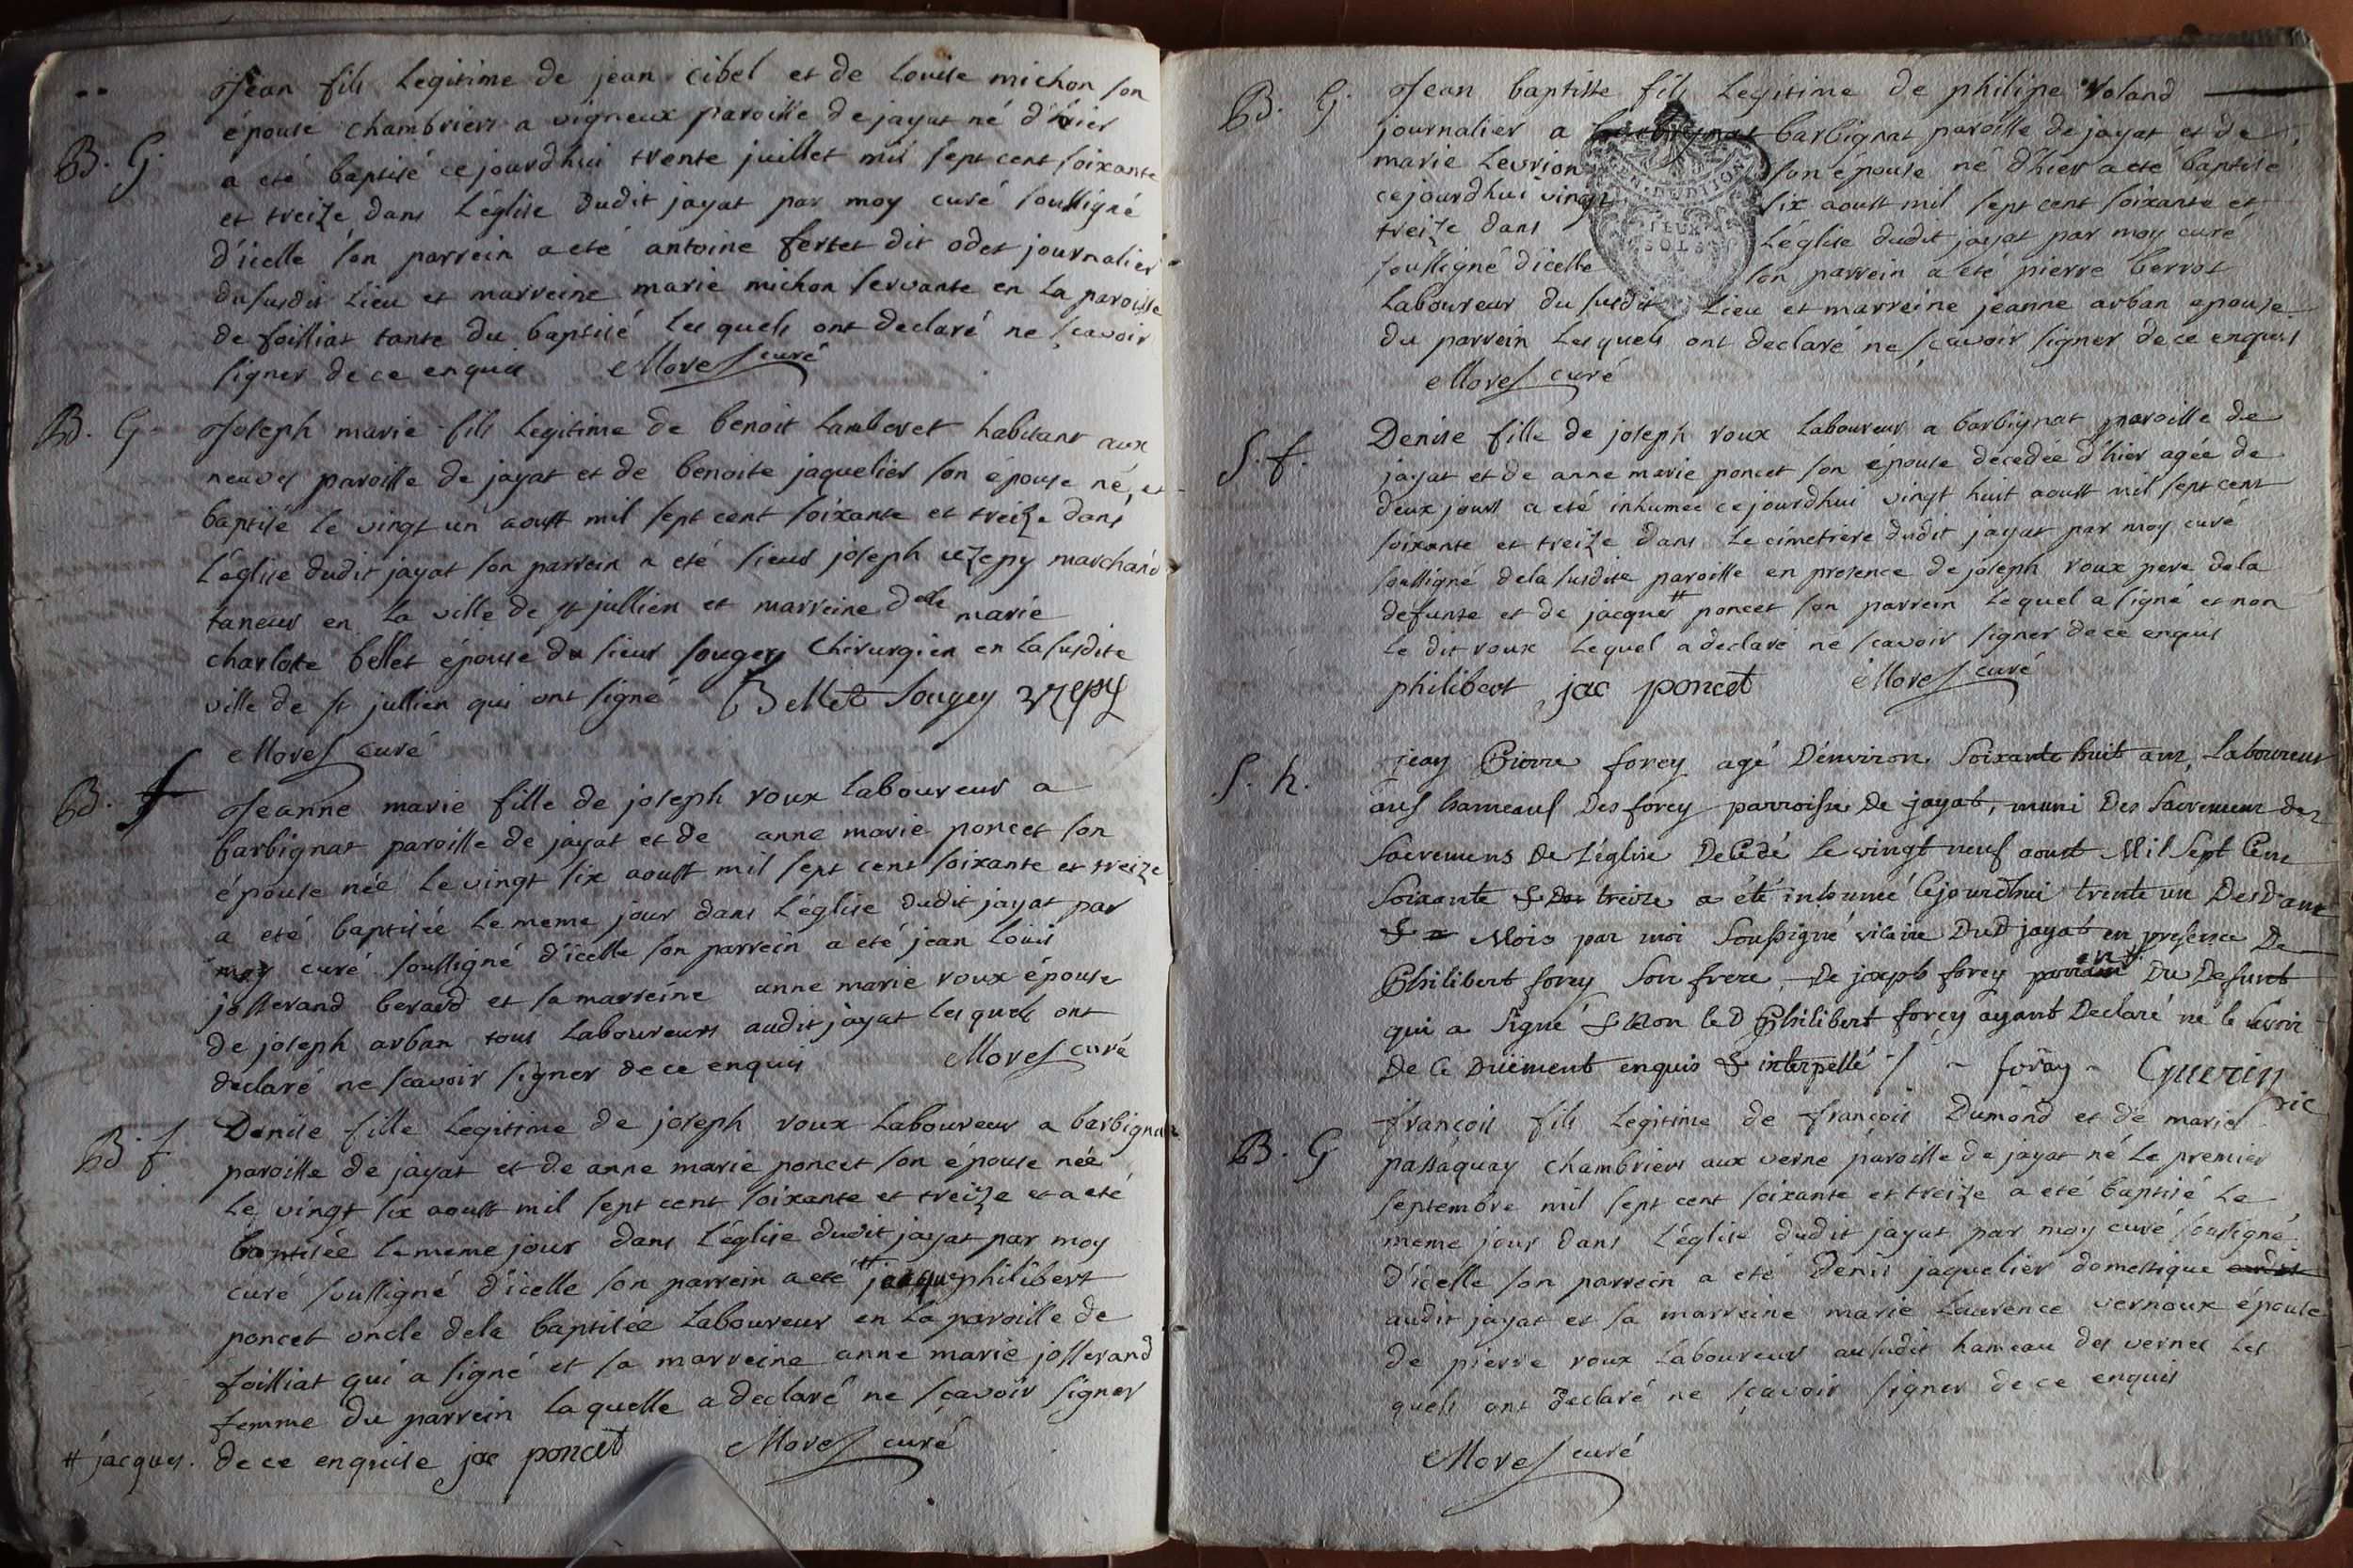 Jean fils legitime de jean cibel et de louise michon son
épouse chambriers a vigneux paroisse de jayat né d'hier
B. G.
a eté baptisé ce jourdhui trente juillet mil sept cent soixante
et treize dans L'église dudit jayat par moy curé soussigné
d'icelle son parrein a eté antoine fertet dit odet journalier
du susdit Lieu et marreine marie michon servante en La paroisse
de foissiat tante du baptisé Les quels ont declaré ne sçavoir
signer de ce enquis Morel curé
B. G. Joseph marie fils Legitime de benoit Lamberet habitant aux
neuves paroisse de jayat et de benoite jaquelier son épouse né, et
baptisé le vingt un aoust mil sept cent soixante et treize dans
L'église dudit jayat son parrein a eté sieur joseph uzepy marchand
taneur en La ville de st jullien et marreine delle marie
charlotte bellet épouse du sieur sougey Chirurgien en La susdite
ville de st jullien qui ont signé Bellet Sougey
Morel curé
B. f Jeanne marie fille de joseph roux Laboureur a
barbignat paroisse de jayat et de anne marie poncet son
épouse née Le vingt six aoust mil sept cent soixante et treize
a eté baptisée Le meme jour dans L'église dudit jayat par
moy curé soussigné d'icelle son parrein a eté jean Louis
josserand berard et sa marreine anne marie roux épouse
de joseph arban tous Laboureurs audit jayat Les quels ont
declaré ne sçavoir signer de ce enquis Morel curé
B. f. Denise fille Legitime de joseph roux Laboureur a barbignat
paroisse de jayat et de anne marie poncet son épouse née
Le vingt six aoust mil sept cent soixante et treize et a eté
baptisée Le meme jour dans L'église dudit jayat par moy
curé soussigné d'icelle son parrein a eté # philibert
poncet oncle dela baptisée Laboureur en La paroisse de
foissiat qui a signé et sa marreine anne marie josserand
femme du parrein laquelle a declaré ne sçavoir signer
# jacques. de ce enquise jac poncet Morel curé
B. G. Jean baptiste fils Legitime de philipe Roland
journalier a barbignat paroisse de jayat et de
marie Levrion son épouse né d'hier a eté baptisé
ce jourdhui vingt six aoust mil sept cent soixante et
treize dans L'église dudit jayat par moy curé
soussigné d'icelle son parrein a eté pierre berrot
Laboureur du susdit Lieu et marreine jeanne arban epouse
du parrein Les quels ont declaré ne sçavoir signer de ce enquis
Morel curé
S. f. Denise fille de joseph roux Laboureur a barbignat paroisse de
jayat et de anne marie poncet son épouse decedée d'hier agée de
deux jours a eté inhumée ce jourdhui vingt huit aoust mil sept cent
soixante et treize dans Le cimetiere dudit jayat par moy curé
soussigné dela susdite paroisse en presence de joseph roux pere dela
defunte et de jacques # poncet son parrein Lequel a signé et non
Le dit roux Lequel a declaré ne sçavoir signer de ce enquis
philibert jac poncet Morel curé
S. h. jean Pierre forey agé D'environ Soixante huit ans, Laboureur
aus hameaus Des forey parroisse De jayat, muni Des Sacremens des
Sacremens De L'église Decedé Le vingt neuf aoust Mil Sept Cent
Soixante & treize a été inhumé Cejourdhui trente un Desd
& Mois par moi Soussigné vicaire DuD jayat en presence De
Philibert forey Son frere, De joseph forey Du Defunt
qui a Signé & Non le D Philibert forey ayant Declaré ne le scavoir
De Ce Duëment enquis & interpellé / - foray - Guerin
vic
françois fils Legitime de françois Dumond et de marie
B. G passaquay chambriers aux verne paroisse de jayat né Le premier
septembre mil sept cent soixante et treize a eté baptisé Le
meme jour dans L'église dudit jayat par moy curé soussigné
d'icelle son parrein a eté Denis jaquelier domestique
audit jayat et sa marreine marie Laurence vernoux épouse
de pierre roux Laboureur au susdit hameau des vernes Les
quels ont declaré ne sçavoir signer de ce enquis
Morel curé